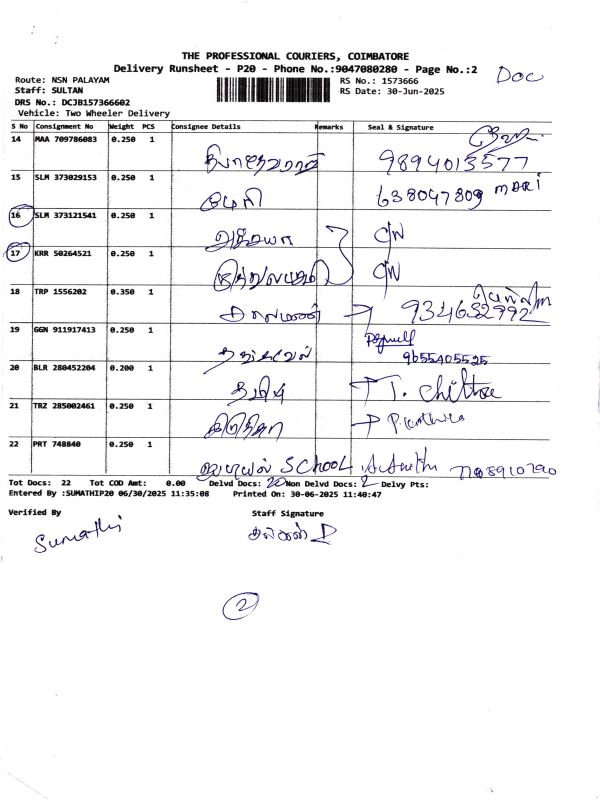 THE PROFESSIONAL COURIERS, COIMBATORE
Delivery Runsheet - P20 - Phone No.:9047080280 - Page No.:2
DOC
Route: NSN PALAYAM
RS No.: 1573666
Staff: SULTAN
RS Date: 30-Jun-2025
DRS No.: DCJB157366602
Vehicle: Two Wheeler Delivery
S No Consignment No Weight PCS Consignee Details Remarks Seal & Signature
14 MAA 709786083 0.250 1 9894013577
15 SLM 373029153 0.250 1 மேரி 638047809 MARI
16 SLM 373121541 0.250 1 C/W
17 KRR 50264521 0.250 1 C/W
18 TRP 1556202 0.350 1 934632992
19 GGN 911917413 0.250 1 கதிர்வேல் 9655405525
20 BLR 280452204 0.200 1 T. Chitra
21 TRZ 285002461 0.250 1
22 PRT 748840 0.250 1 SCHOOL 7708910790
Tot Docs: 22 Tot COD Amt: 0.00 Delvd Docs: 20 Non Delvd Docs: 2 Delvy Pts:
Entered By :SUMATHIP20 06/30/2025 11:35:08 Printed On: 30-06-2025 11:40:47
Verified By Staff Signature
Sumathi
2